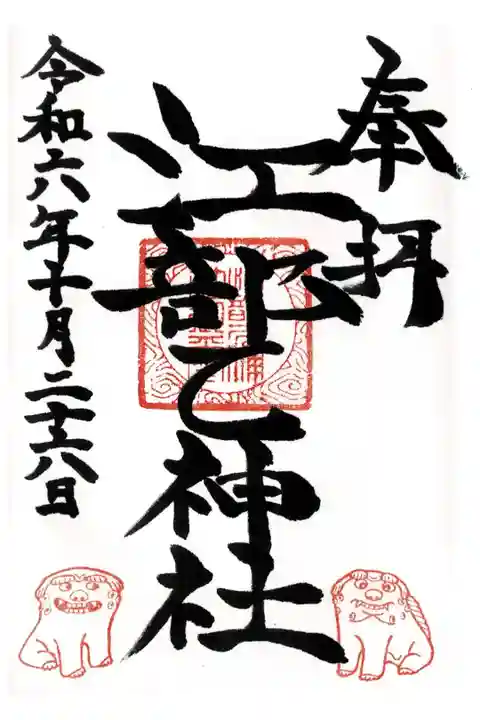 奉拝
江部乙神社
令和六年十月二十六日